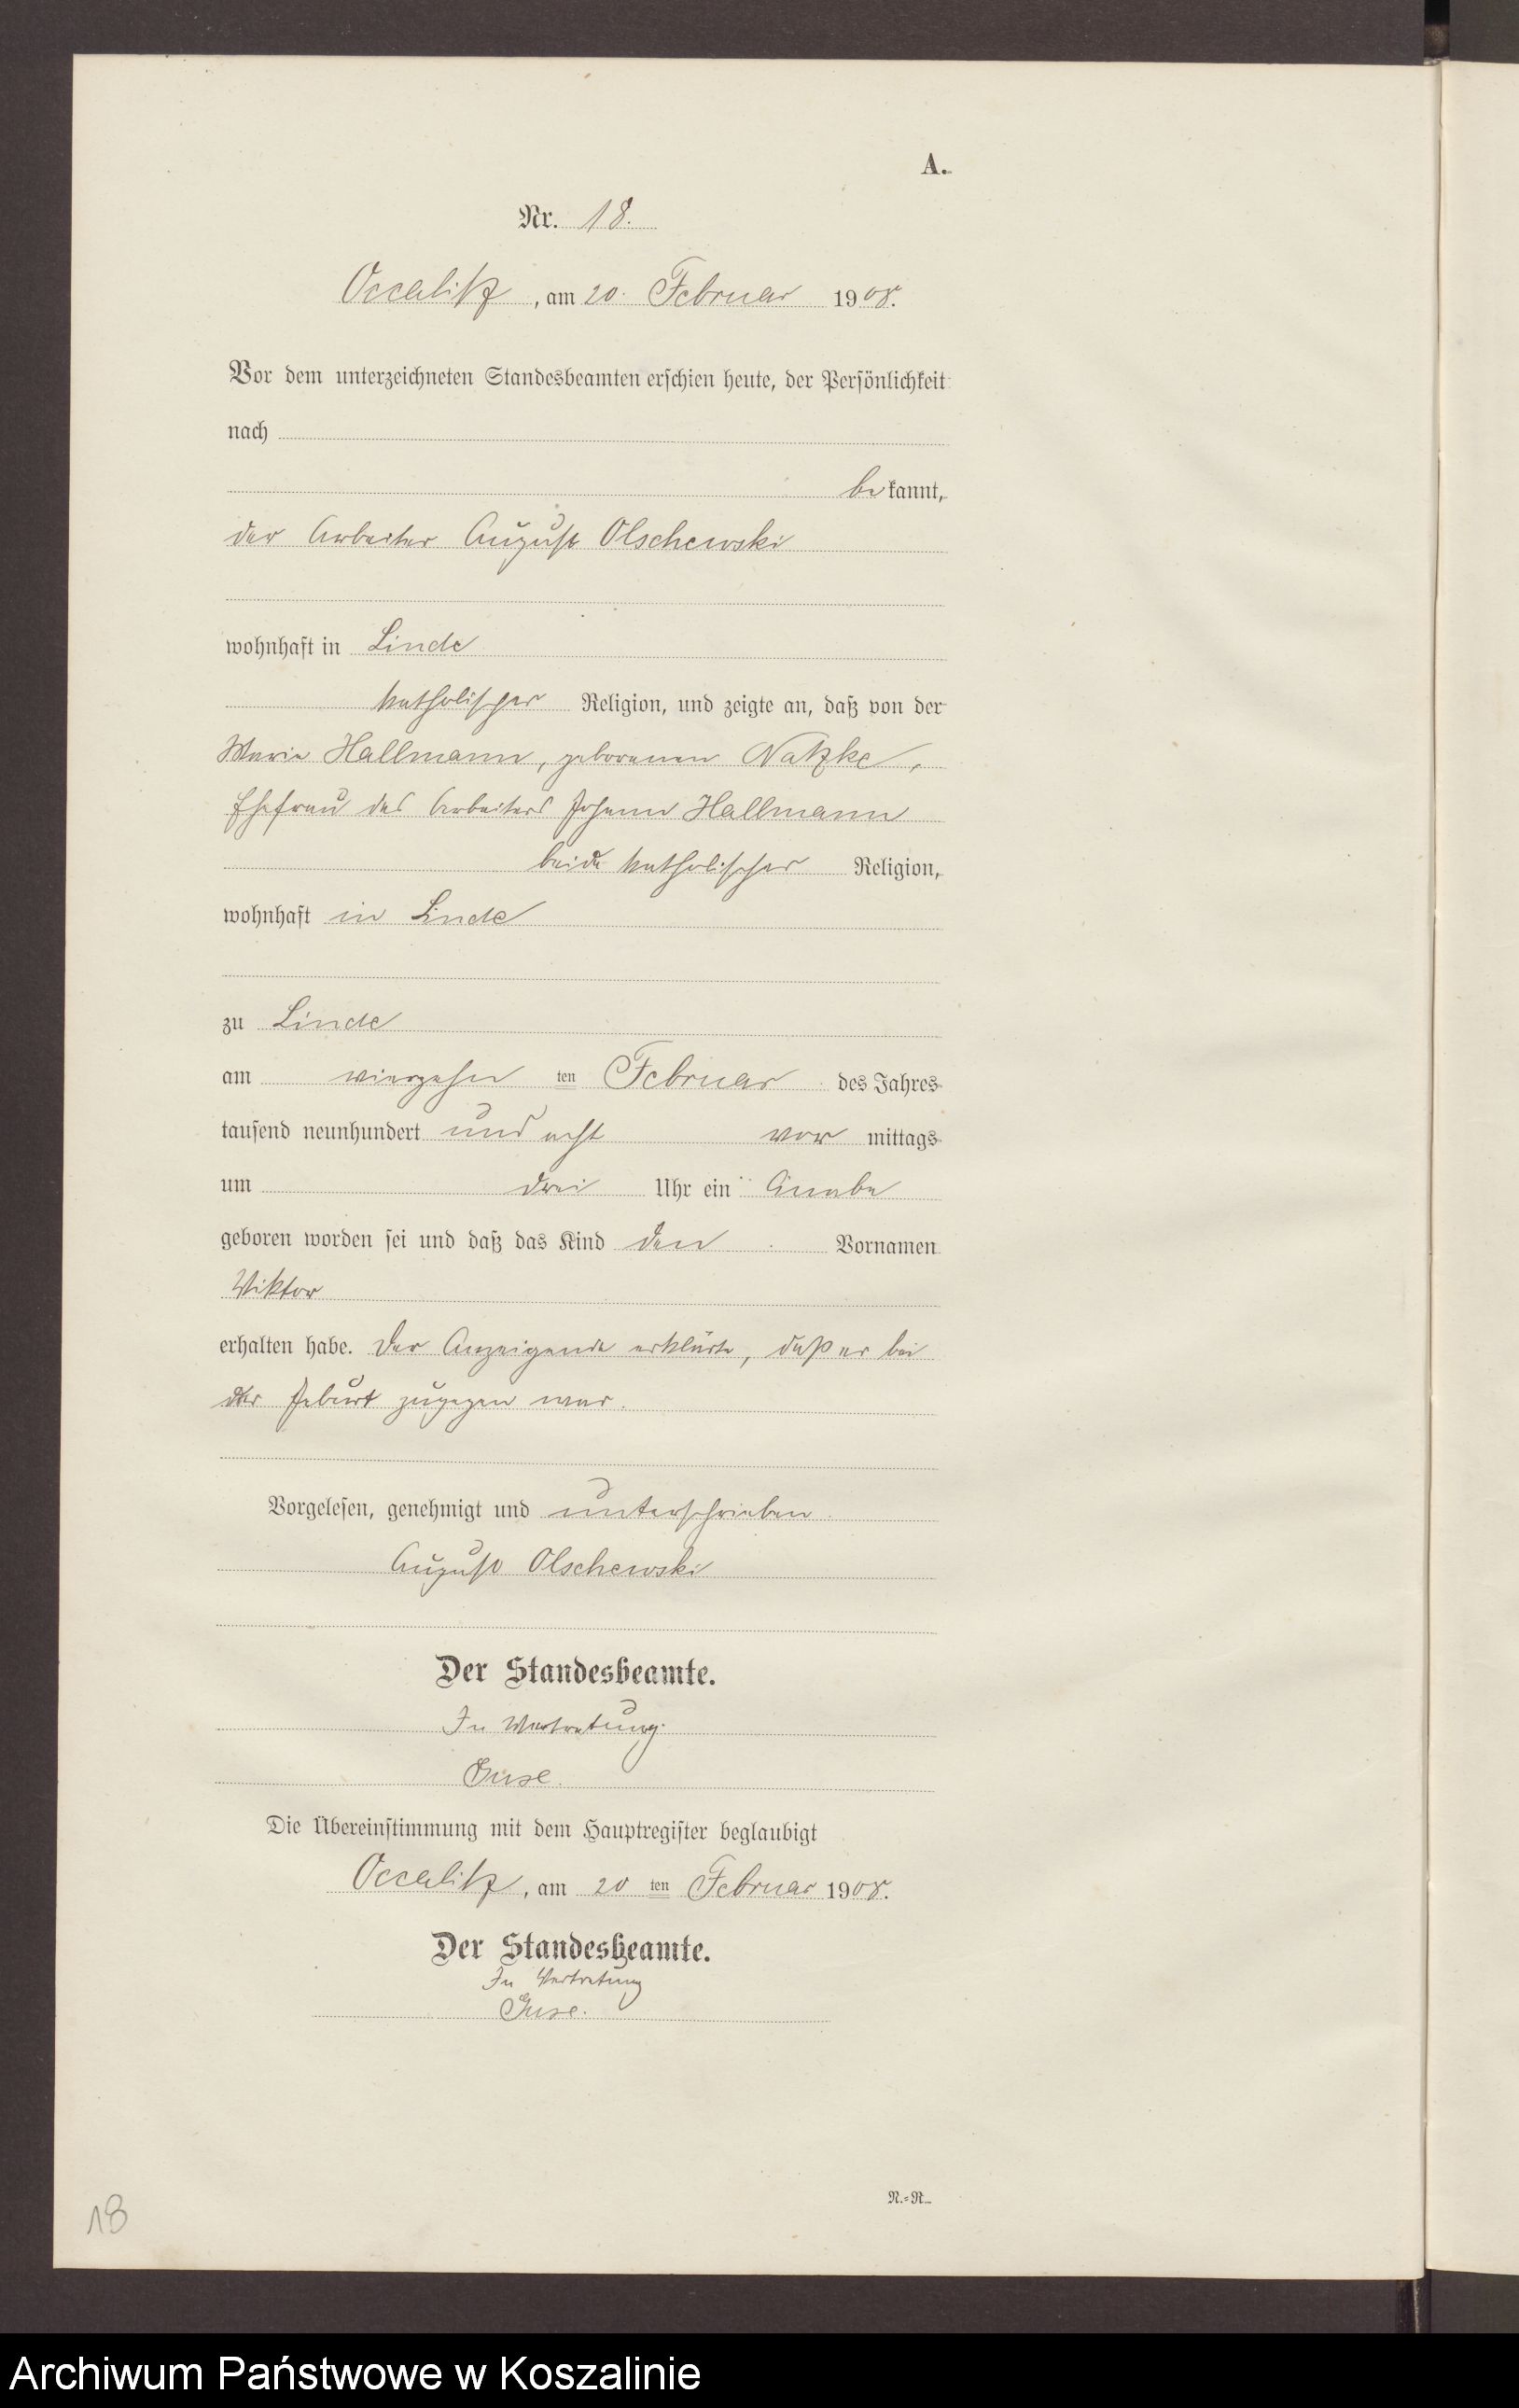 A.
Nr. 18.
Occalitz, am 20. Februar 1908.
Vor dem unterzeichneten Standesbeamten erschien heute, der Persönlichkeit
nach
bekannt,
der Arbeiter August Olschewski
wohnhaft in Linde
katholischer Religion, und zeigte an, daß von der
Maria Hallmann, geborenen Natzke,
Ehefrau des Arbeiters Johann Hallmann
beide katholischer Religion,
wohnhaft in Linde
zu Linde
am vierzehn ten Februar des Jahres
tausend neunhundert und acht vor mittags
um drei Uhr ein Knabe
geboren worden sei und daß das Kind den Vornamen
Viktor
erhalten habe. Der Anzeigende erklärte, daß er bei
der Geburt zugegen war.
Vorgelesen, genehmigt und unterschrieben.
August Olschewski
Der Standesbeamte.
In Vertretung
Guse.
Die Übereinstimmung mit dem Hauptregister beglaubigt
Occalitz, am 20 ten Februar 1908.
Der Standesbeamte.
In Vertretung
Guse.
N.=R.
18
Archiwum Państwowe w Koszalinie